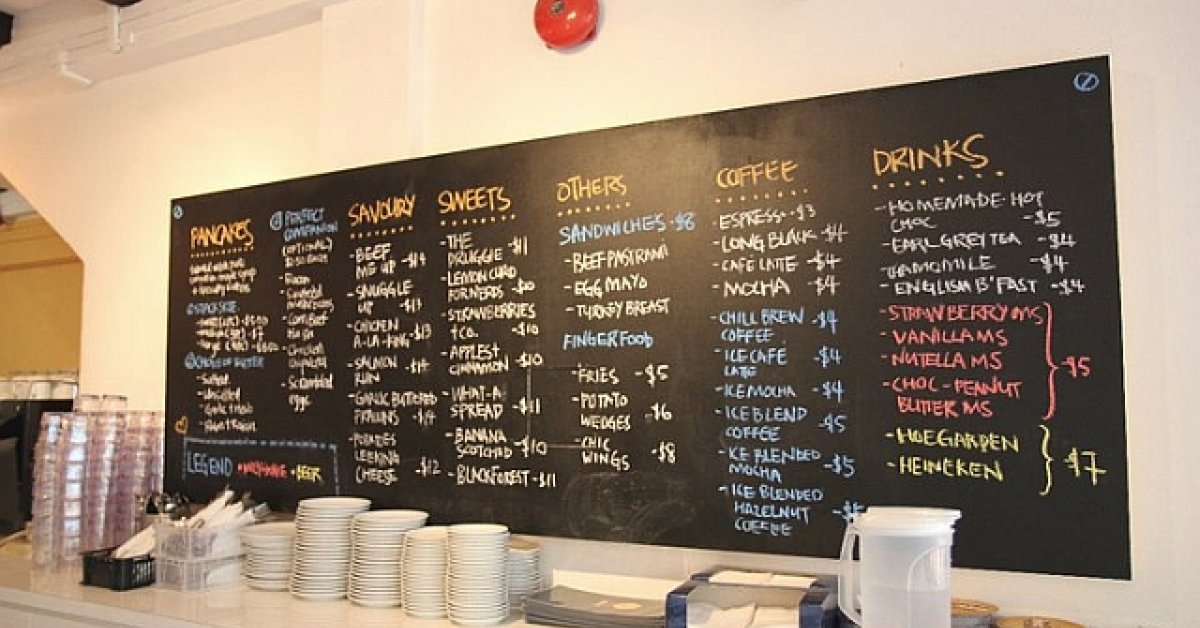 PANCAKES
PERFECT
COMPANION
(OPTIONAL)
- Bacon
- Scrambled
eggs
LEGEND
BEER
SAVOURY
- BEEF
ME UP -$14
- SNUGGLE
UP -$13
- CHICKEN
A-LA-KING -$13
- SALMON
RUN
- GARLIC BUTTERED
PRAWNS
CHEESE -$12
SWEETS
- THE
DRUGGIE -$11
- LEMON CURD
FOR NERDS -$10
- STRAWBERRIES
& CO. -$10
- APPLES &
CINNAMON -$10
- WHAT-A-
SPREAD -$11
- BANANA
SCOTCHED -$10
- BLACKFOREST -$11
OTHERS
SANDWICHES -$8
- BEEF PASTRAMI
- EGG MAYO
- TURKEY BREAST
FINGER FOOD
- FRIES -$5
- POTATO
WEDGES -$6
- CHIC
WINGS -$8
COFFEE
- ESPRESSO -$3
- LONG BLACK -$4
- CAFE LATTE -$4
- MOCHA -$4
- CHILL BREW
COFFEE -$4
- ICE CAFE
LATTE -$4
- ICE MOCHA -$4
- ICE BLEND
COFFEE -$5
- ICE BLENDED
MOCHA -$5
- ICE BLENDED
HAZELNUT
COFFEE
DRINKS
- HOMEMADE HOT
CHOC -$5
- EARL GREY TEA -$4
- CHAMOMILE -$4
- ENGLISH B'FAST -$4
- STRAWBERRY MS
- VANILLA MS
- NUTELLA MS
- CHOC-PEANUT
BUTTER MS
-$5
- HOEGARDEN
- HEINEKEN
-$7